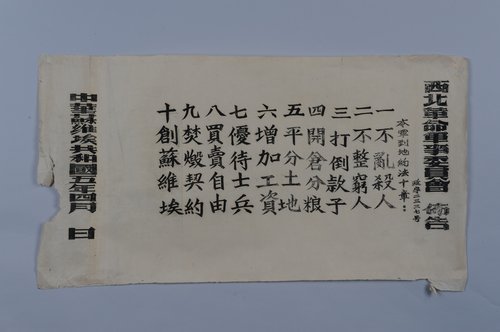 西北革命軍事委員會 佈告
政字二三二七号
本軍到地約法十章：
一不亂殺人
二不整窮人
三打倒款子
四開倉分粮
五平分土地
六增加工資
七優待士兵
八買賣自由
九焚燬契約
十創蘇維埃
中華蘇維埃共和國五年四月 日